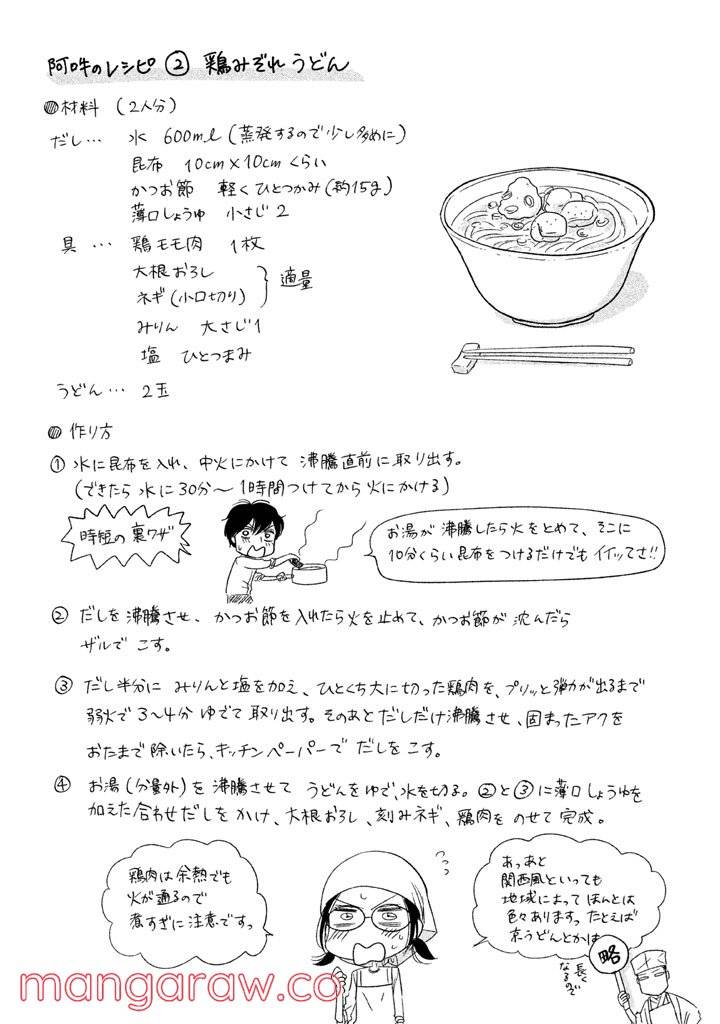 阿吽のレシピ② 鶏みぞれうどん
●材料 (2人分)
だし… 水 600ml (蒸発するので少し多めに)
昆布 10cm×10cmくらい
かつお節 軽くひとつかみ(約15g)
薄口しょうゆ 小さじ2
具 … 鶏モモ肉 1枚
大根おろし
ネギ(小口切り)
適量
みりん 大さじ1
塩 ひとつまみ
うどん… 2玉
●作り方
①水に昆布を入れ、中火にかけて沸騰直前に取り出す。
(できたら水に30分〜1時間つけてから火にかける)
時短の裏ワザ
お湯が沸騰したら火をとめて、そこに
10分くらい昆布をつけるだけでもイイッてさ!!
②だしを沸騰させ、かつお節を入れたら火を止めて、かつお節が沈んだら
ザルでこす。
③だし半分にみりんと塩を加え、ひとくち大に切った鶏肉を、プリッと弾力が出るまで
弱火で3〜4分ゆでて取り出す。そのあとだしだけ沸騰させ、固まったアクを
おたまで除いたら、キッチンペーパーでだしをこす。
④お湯(分量外)を沸騰させてうどんをゆで、水を切る。②と③に薄口しょうゆを
加えた合わせだしをかけ、大根おろし、刻みネギ、鶏肉をのせて完成。
鶏肉は余熱でも
火が通るので
煮すぎに注意ですっ
あっあと
関西風といっても
地域によってほんとは
色々ありますっ たとえば
京うどんとかは
略
長く
なるので
mangaraw.co